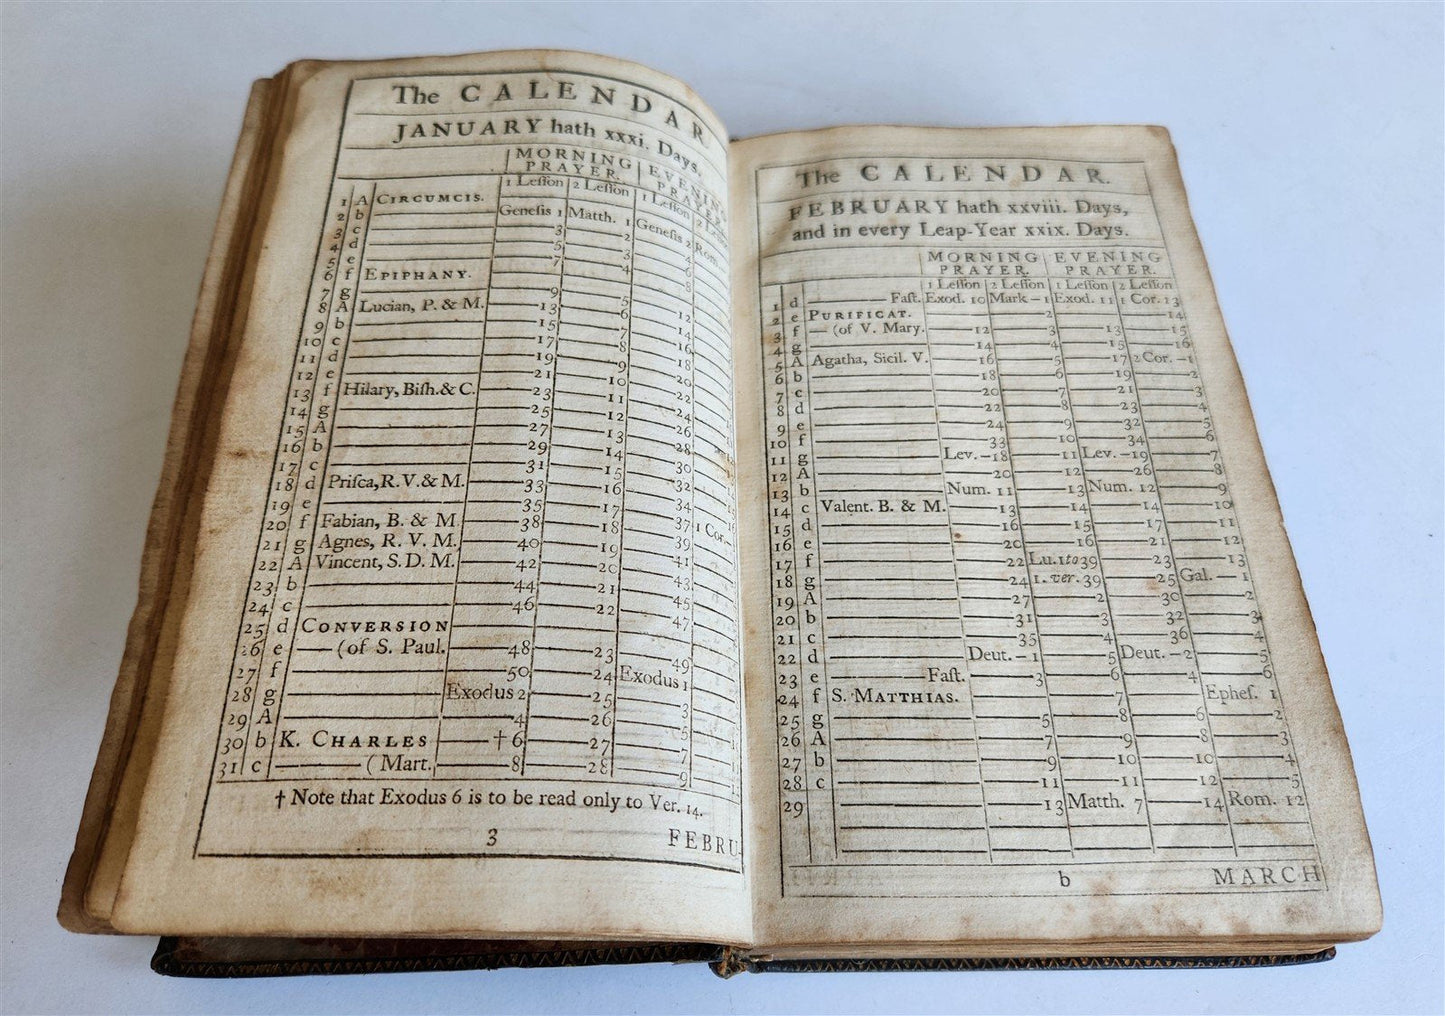 The CALENDAR
JANUARY hath xxxi. Days.
MORNING PRAYER. EVENING PRAYER.
1 Leſſon 2 Leſſon 1 Leſſon 2 Leſſon
1 A CIRCUMCIS.
2 b Geneſis 1 Matth. 1 Geneſis 2 Rom.
3 c 3 2 4
4 d 5 3 6
5 e 7 4 8
6 f EPIPHANY.
7 g 9 5 12
8 A Lucian, P. & M. 13 6 14
9 b 15 7 16
10 c 17 8 18
11 d 19 9 20
12 e 21 10 22
13 f Hilary, Biſh. & C. 23 11 24
14 g 25 12 26
15 A 27 13 28
16 b 29 14 30
17 c 31 15 32
18 d Priſca, R. V. & M. 33 16 34
19 e 35 17 37 1 Cor.
20 f Fabian, B. & M. 38 18 39
21 g Agnes, R. V. M. 40 19 41
22 A Vincent, S. D. M. 42 20 43
23 b 44 21 45
24 c 46 22 47
25 d CONVERSION
26 e (of S. Paul. 48 23 49
27 f 50 24 Exodus 1
28 g Exodus 2 25 3
29 A 4 26 5
30 b K. CHARLES † 6 27 7
31 c (Mart. 8 28 9
† Note that Exodus 6 is to be read only to Ver. 14.
3 FEBRU-
The CALENDAR.
FEBRUARY hath xxviii. Days,
and in every Leap-Year xxix. Days.
MORNING PRAYER. EVENING PRAYER.
1 Leſſon 2 Leſſon 1 Leſſon 2 Leſſon
1 d Faſt. Exod. 10 Mark 1 Exod. 11 1 Cor. 13
2 e PURIFICAT. 2 14
3 f (of V. Mary. 12 3 13 15
4 g 14 4 15 16
5 A Agatha, Sicil. V. 16 5 17 2 Cor. 1
6 b 18 6 19 2
7 c 20 7 21 3
8 d 22 8 23 4
9 e 24 9 32 5
10 f 33 10 34 6
11 g Lev. 18 11 Lev. 19 7
12 A 20 12 26 8
13 b Num. 11 13 Num. 12 9
14 c Valent. B. & M. 13 14 14 10
15 d 16 15 17 11
16 e 20 16 21 12
17 f 22 Lu. 1 to 39 23 13
18 g 24 1. ver. 39 25 Gal. 1
19 A 27 2 30 2
20 b 31 3 32 3
21 c 35 4 36 4
22 d Deut. 1 5 Deut. 2 5
23 e Faſt. 3 6 4 6
24 f S. MATTHIAS. 7 Epheſ. 1
25 g 5 8 6 2
26 A 7 9 8 3
27 b 9 10 10 4
28 c 11 11 12 5
29 13 Matth. 7 14 Rom. 12
b MARCH